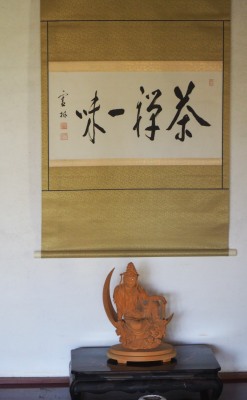 茶禅一味